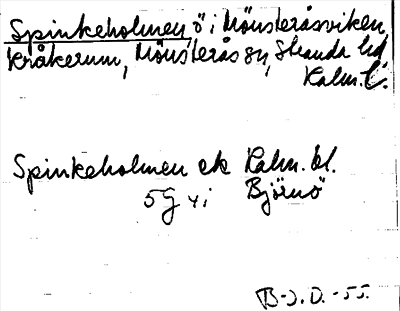 Spinkeholmen ö i Mönsteråsviken,
Kråkerum, Mönsterås sn, Stranda hd
Kalm. l.
Spinkeholmen ek Kalm. bl.
5G xi Björnö
B-J. D. -55.